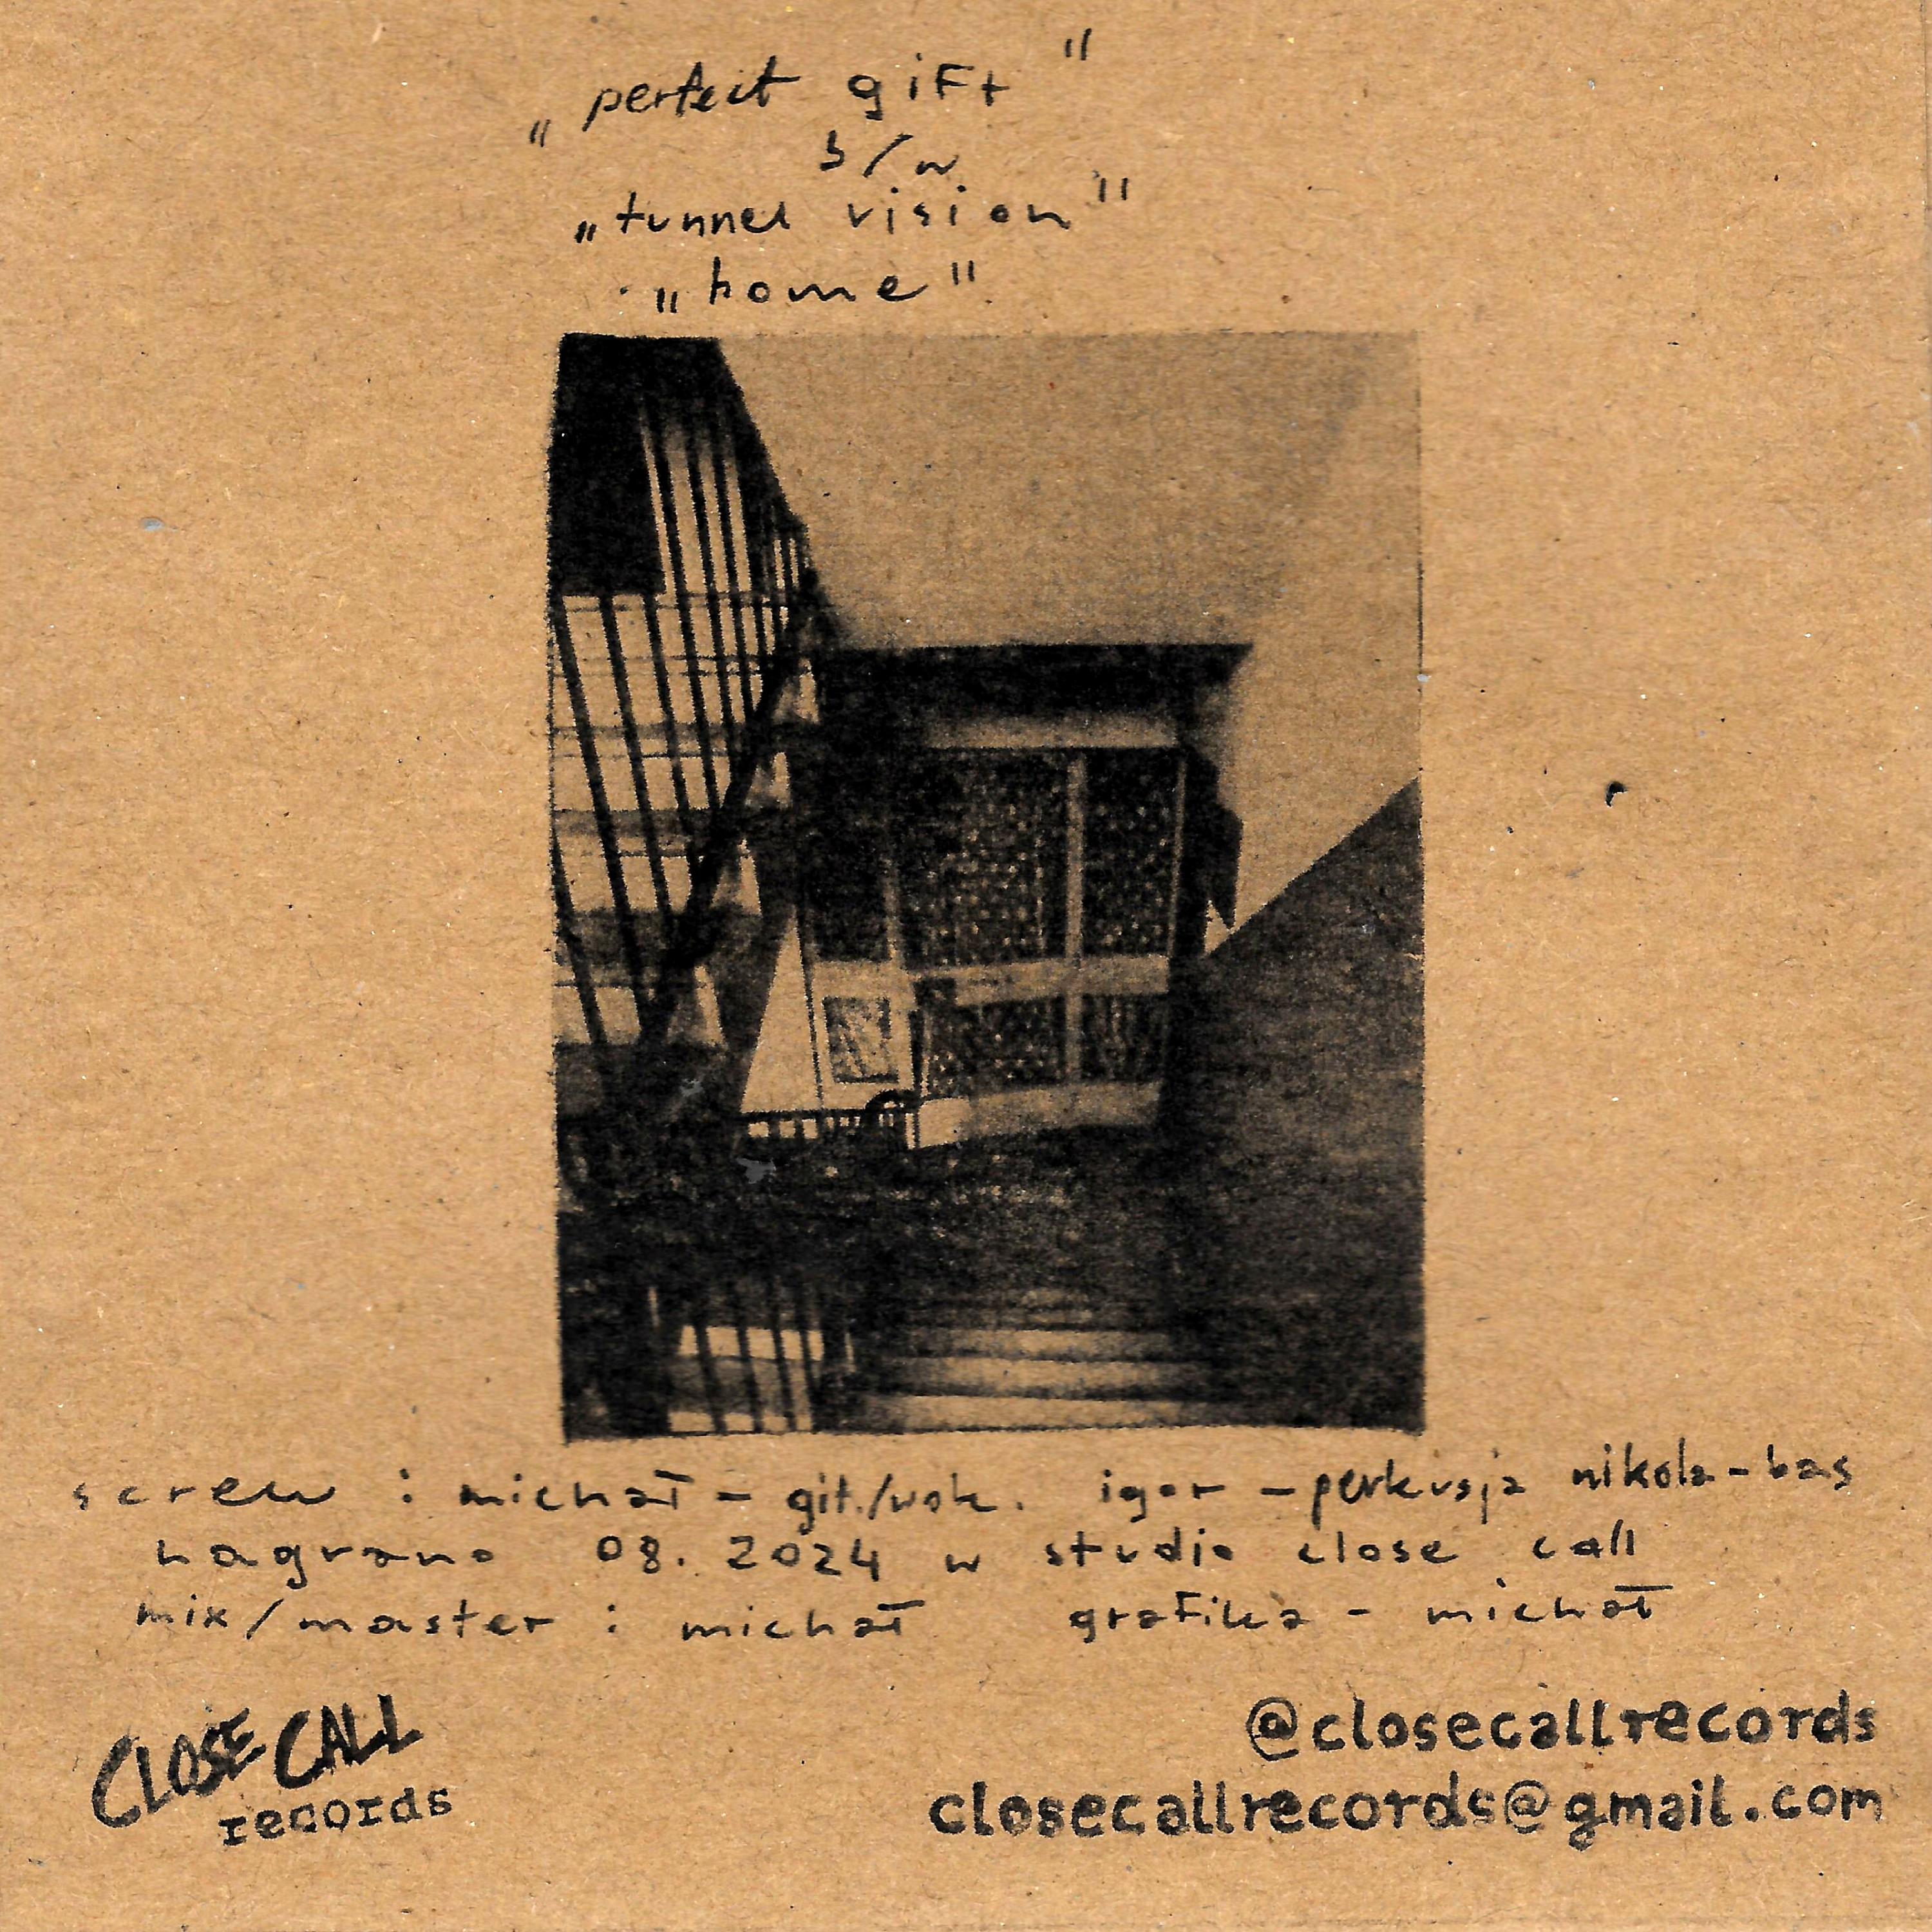 „perfect gift"
b/w
„tunnel vision"
„home"
screw : michał - git./wok. igor - perkusja nikola - bas
nagrano 08. 2024 w studio close call
mix/master : michał grafika - michał
CLOSE CALL
records
@closecallrecords
closecallrecords@gmail.com